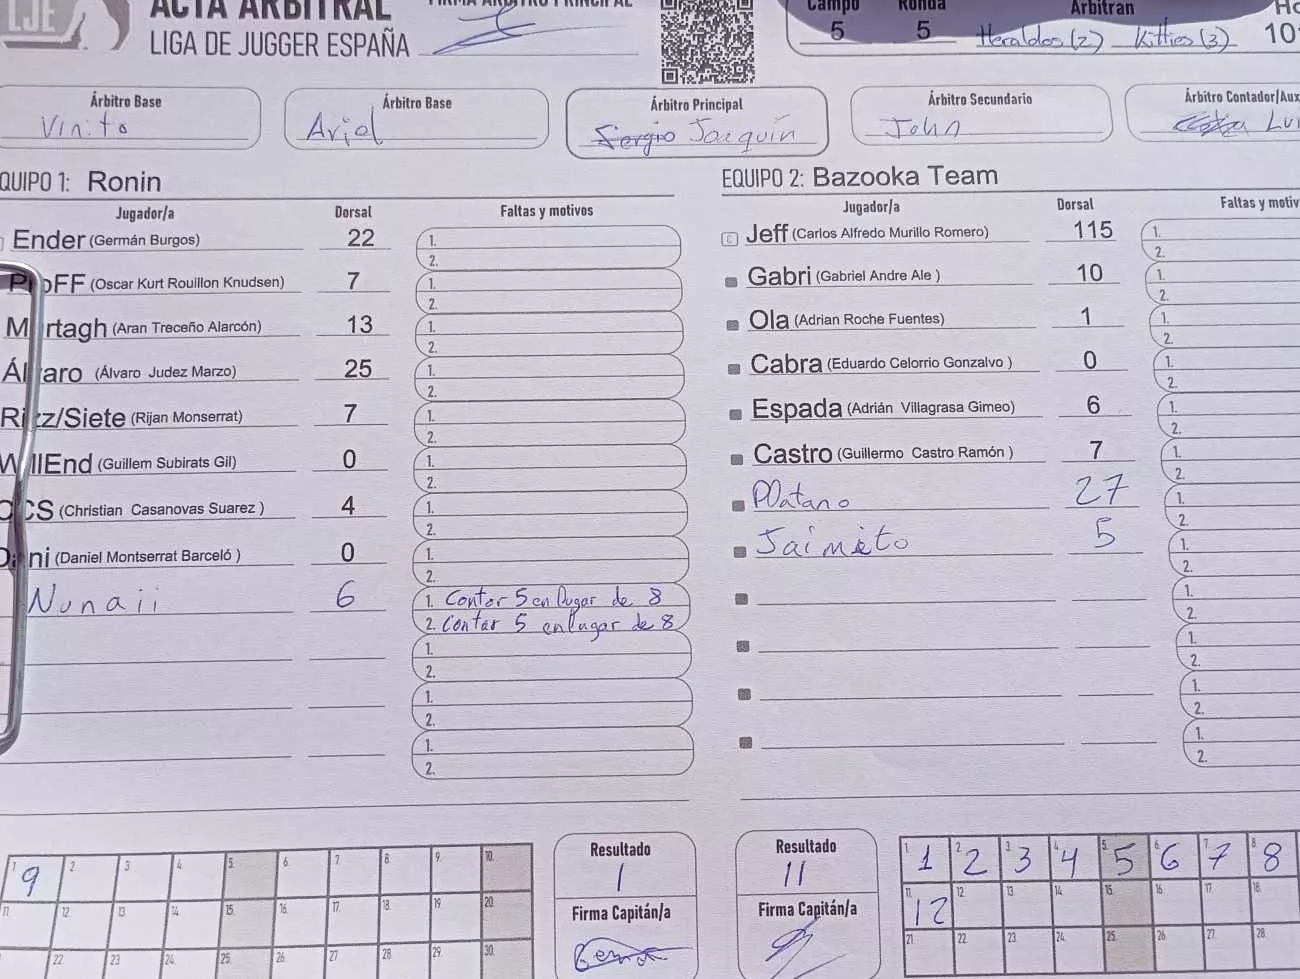 LJE
ACTA ARBITRAL
LIGA DE JUGGER ESPAÑA
FIRMA ÁRBITRO PRINCIPAL
Campo Ronda Arbitran
5 5 Heraldos (2) Kitties (3) 10
Árbitro Base
Vinito
Árbitro Base
Ariel
Árbitro Principal
Sergio Joaquín
Árbitro Secundario
John
Árbitro Contador/Aux
Lui
QUIPO 1: Ronin
Jugador/a Dorsal Faltas y motivos
Ender (Germán Burgos) 22 1.
2.
(Oscar Kurt Rouillon Knudsen) 7 1.
2.
M rtagh (Aran Treceño Alarcón) 13 1.
2.
Ál aro (Álvaro Judez Marzo) 25 1.
2.
Ri zz/Siete (Rijan Monserrat) 7 1.
2.
W llEnd (Guillem Subirats Gil) 0 1.
2.
CS (Christian Casanovas Suarez ) 4 1.
2.
Dani (Daniel Montserrat Barceló ) 0 1.
2.
Nunaii 6 1. Contar 5 en lugar de 8
2. Contar 5 en lugar de 8
1.
2.
1.
2.
1.
2.
EQUIPO 2: Bazooka Team
Jugador/a Dorsal Faltas y motiv
C Jeff (Carlos Alfredo Murillo Romero) 115 1.
2.
Gabri (Gabriel Andre Ale ) 10 1.
2.
Ola (Adrian Roche Fuentes) 1 1.
2.
Cabra (Eduardo Celorrio Gonzalvo ) 0 1.
2.
Espada (Adrián Villagrasa Gimeo) 6 1.
2.
Castro (Guillermo Castro Ramón ) 7 1.
2.
Platano 27 1.
2.
Jaimito 5 1.
2.
1.
2.
1.
2.
1.
2.
1.
2.
1 9 2. 3 4 5. 6 7 8 9. 10.
11 12 13 14 15 16 17. 18 19 20
22 23 24 25 26 27 28 29. 30.
Resultado
1
Firma Capitán/a
Resultado
11
Firma Capitán/a
1. 1 2. 2 3 3 4 4 5. 5 6. 6 7. 7 8 8
11. 12 12 13 14 15. 16 17. 18.
21 22 23 24 25. 26 27. 28.